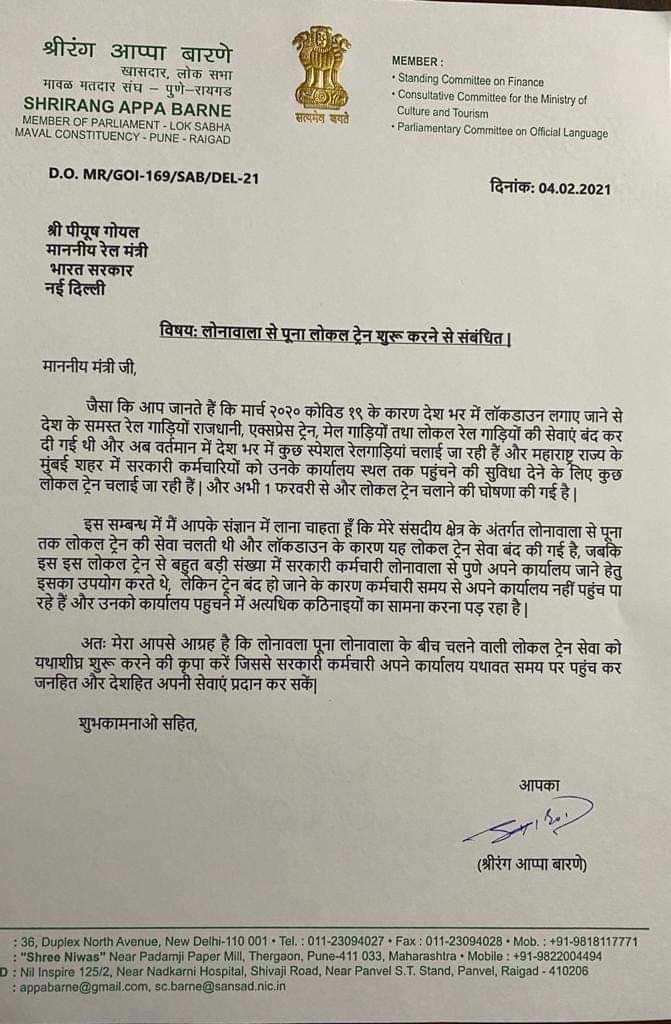 श्रीरंग आप्पा बारणे
खासदार, लोक सभा
मावळ मतदार संघ – पुणे–रायगड
SHRIRANG APPA BARNE
MEMBER OF PARLIAMENT - LOK SABHA
MAVAL CONSTITUENCY - PUNE - RAIGAD
सत्यमेव जयते
MEMBER :
• Standing Committee on Finance
• Consultative Committee for the Ministry of
Culture and Tourism
• Parliamentary Committee on Official Language
D.O. MR/GOI-169/SAB/DEL-21
दिनांक: 04.02.2021
श्री पीयूष गोयल
माननीय रेल मंत्री
भारत सरकार
नई दिल्ली
विषय: लोनावाला से पूना लोकल ट्रेन शुरू करने से संबंधित|
माननीय मंत्री जी,
जैसा कि आप जानते हैं कि मार्च २०२० कोविड १९ के कारण देश भर में लॉकडाउन लगाए जाने से
देश के समस्त रेल गाड़ियों राजधानी, एक्सप्रेस ट्रेन, मेल गाड़ियों तथा लोकल रेल गाड़ियों की सेवाएं बंद कर
दी गई थी और अब वर्तमान में देश भर में कुछ स्पेशल रेलगाड़ियां चलाई जा रही हैं और महाराष्ट्र राज्य के
मुंबई शहर में सरकारी कर्मचारियों को उनके कार्यालय स्थल तक पहुंचने की सुविधा देने के लिए कुछ
लोकल ट्रेन चलाई जा रही हैं | और अभी 1 फरवरी से और लोकल ट्रेन चलाने की घोषणा की गई है |
इस सम्बन्ध में मैं आपके संज्ञान में लाना चाहता हूँ कि मेरे संसदीय क्षेत्र के अंतर्गत लोनावाला से पूना
तक लोकल ट्रेन की सेवा चलती थी और लॉकडाउन के कारण यह लोकल ट्रेन सेवा बंद की गई है, जबकि
इस इस लोकल ट्रेन से बहुत बड़ी संख्या में सरकारी कर्मचारी लोनावाला से पुणे अपने कार्यालय जाने हेतु
इसका उपयोग करते थे, लेकिन ट्रेन बंद हो जाने के कारण कर्मचारी समय से अपने कार्यालय नहीं पहुंच पा
रहे हैं और उनको कार्यालय पहुचने में अत्यधिक कठिनाइयों का सामना करना पड़ रहा है |
अतः मेरा आपसे आग्रह है कि लोनावला पूना लोनावाला के बीच चलने वाली लोकल ट्रेन सेवा को
यथाशीघ्र शुरू करने की कृपा करें जिससे सरकारी कर्मचारी अपने कार्यालय यथावत समय पर पहुंच कर
जनहित और देशहित अपनी सेवाएं प्रदान कर सकें|
शुभकामनाओ सहित,
आपका
(श्रीरंग आप्पा बारणे)
: 36, Duplex North Avenue, New Delhi-110 001 • Tel. : 011-23094027 • Fax : 011-23094028 • Mob. : +91-9818117771
: "Shree Niwas" Near Padamji Paper Mill, Thergaon, Pune-411 033, Maharashtra • Mobile : +91-9822004494
D : Nil Inspire 125/2, Near Nadkarni Hospital, Shivaji Road, Near Panvel S.T. Stand, Panvel, Raigad - 410206
: appabarne@gmail.com, sc.barne@sansad.nic.in